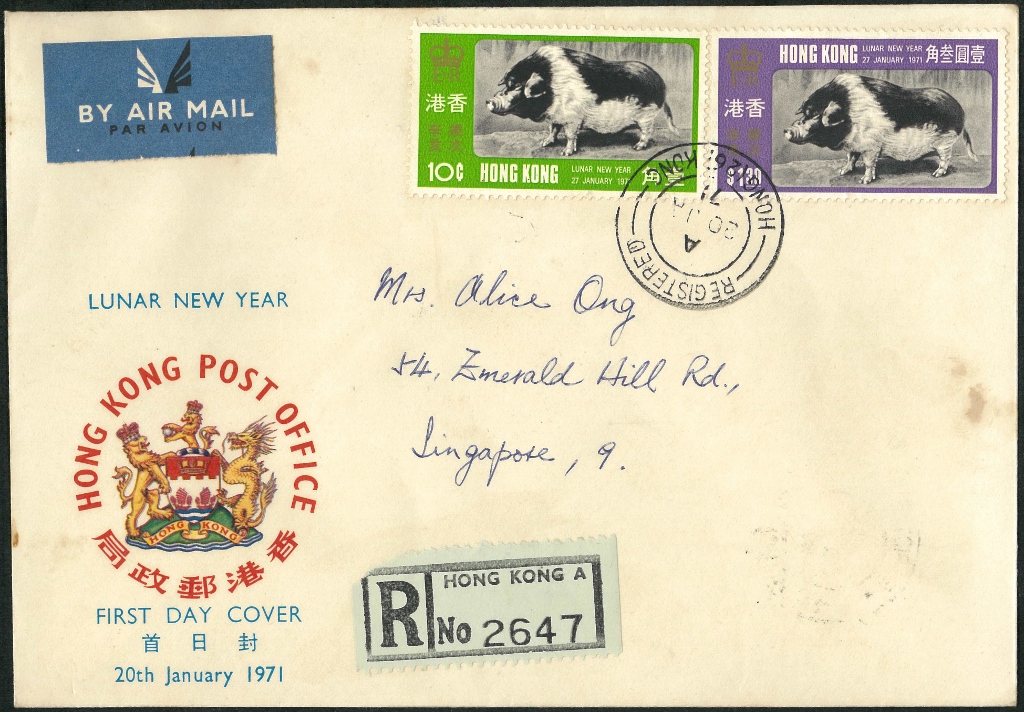 BY AIR MAIL
PAR AVION
港香
10¢ HONG KONG LUNAR NEW YEAR
27 JANUARY 1971
HONG KONG LUNAR NEW YEAR
27 JANUARY 1971 角叁圓壹
港香
$1.30
REGISTERED
HONG KONG
A
20 JA
71
LUNAR NEW YEAR
Mrs. Alice Ong
54, Emerald Hill Rd.,
Singapore, 9.
HONG KONG POST OFFICE
HONG KONG
局政郵港香
FIRST DAY COVER
首日封
20th January 1971
R HONG KONG A
No 2647